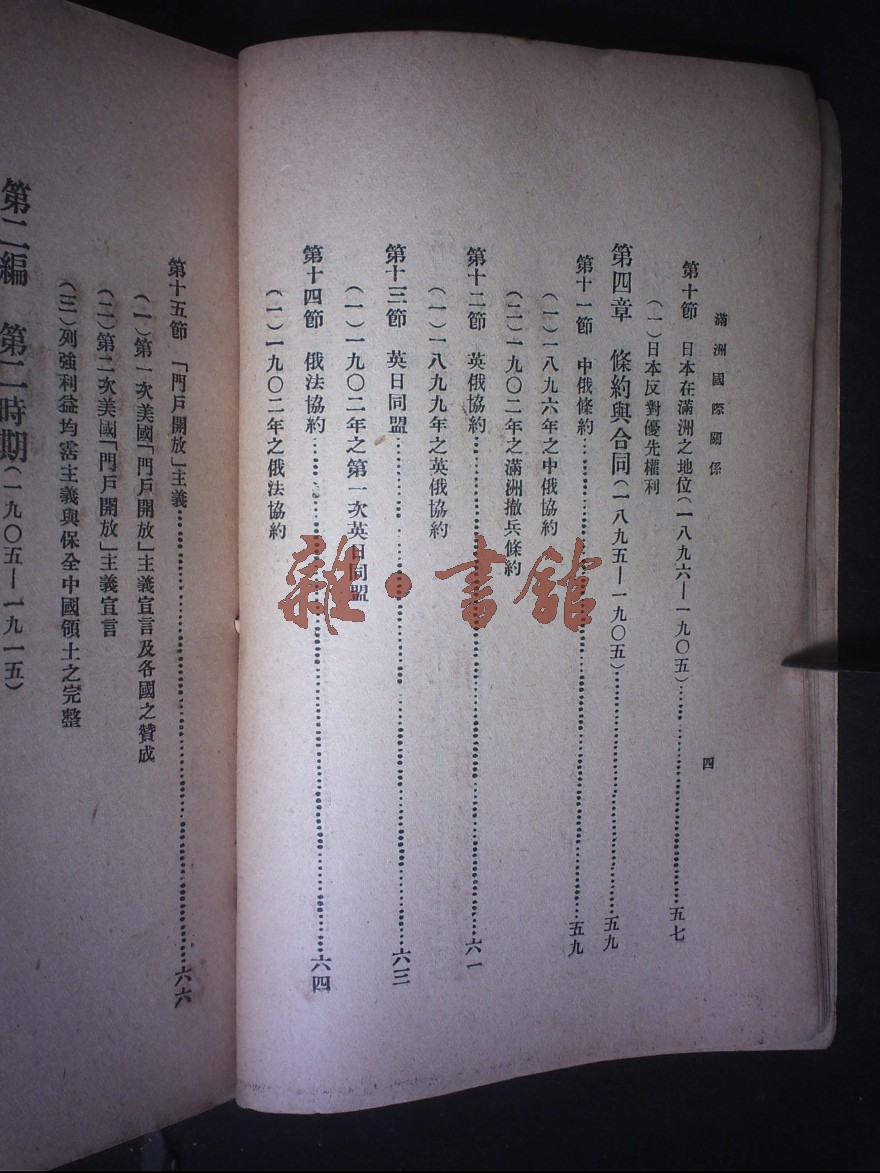 滿洲國際關係
四
第十節 日本在滿洲之地位(一八九六—一九〇五)……五七
(一)日本反對優先權利
第四章 條約與合同(一八九五—一九〇五)……五九
第十一節 中俄條約……五九
(一)一八九六年之中俄協約
(二)一九〇二年之滿洲撤兵條約
第十二節 英俄協約……六一
(一)一八九九年之英俄協約
第十三節 英日同盟……六三
(一)一九〇二年之第一次英日同盟
第十四節 俄法協約……六四
(一)一九〇二年之俄法協約
第十五節 「門戶開放」主義……六六
(一)第一次美國「門戶開放」主義宣言及各國之贊成
(二)第二次美國「門戶開放」主義宣言
(三)列強利益均霑主義與保全中國領土之完整
第二編 第二時期(一九〇五—一九一五)
雜·書館